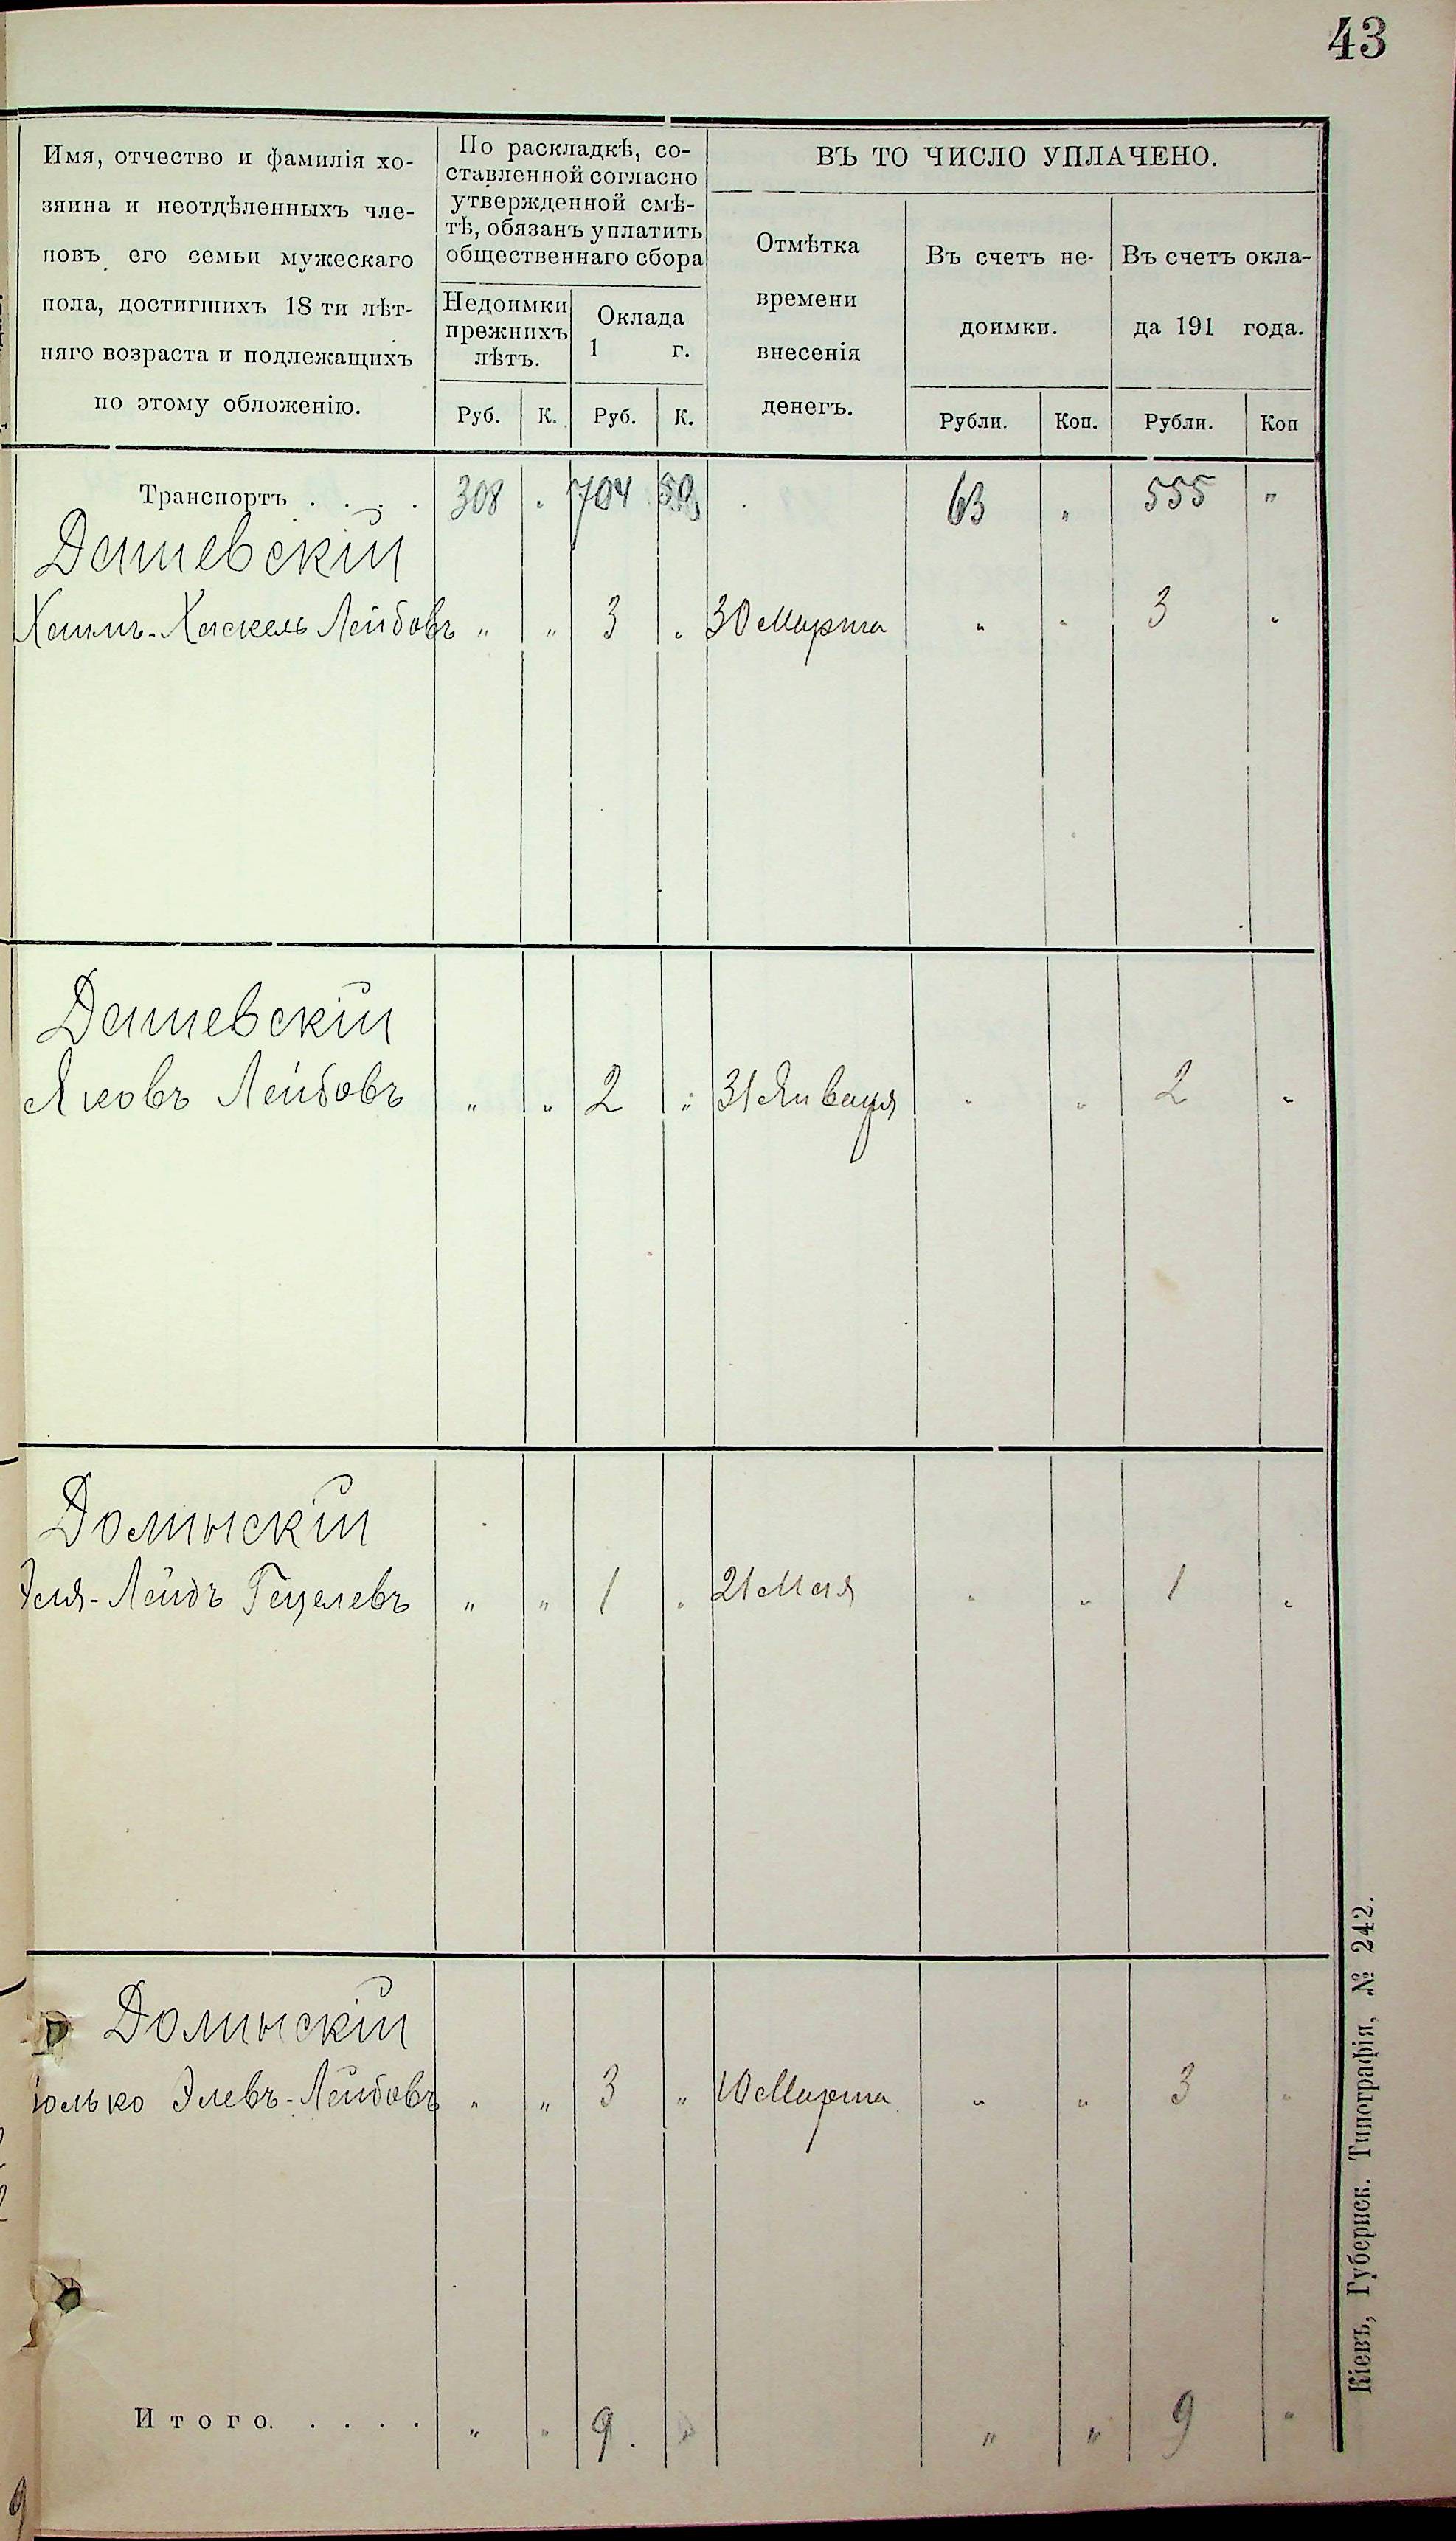 43
Имя, отчество и фамилія хо-
зяина и неотдѣленныхъ чле-
новъ его семьи мужескаго
пола, достигшихъ 18 ти лѣт-
няго возраста и подлежащихъ
по этому обложенію.
По раскладкѣ, со-
ставленной согласно
утвержденной смѣ-
тѣ, обязанъ уплатить
общественнаго сбора
Недоимки
прежнихъ
лѣтъ.
Оклада
1 г.
ВЪ ТО ЧИСЛО УПЛАЧЕНО.
Отмѣтка
времени
внесенія
денегъ.
Въ счетъ не-
доимки.
Въ счетъ окла-
да 191 года.
Руб. К. Руб. К. Рубли. Коп. Рубли. Коп
Транспортъ . . . . 308 " 704 50 63 " 555 "
Дашевскій
Хаимъ-Хаскель Лейбовъ " " 3 " 30 Марта " " 3 "
Дашевскій
Яковъ Лейбовъ " " 2 " 31 Января " " 2 "
Долинскій
Лейбъ Гецелевъ " " 1 " 21 Мая " " 1 "
Долинскій
Элевъ-Лейбовъ " " 3 " 10 Марта " " 3 "
Итого. . . . . " " 9 . " " 9 "
Кіевъ, Губернск. Типографія, № 242.